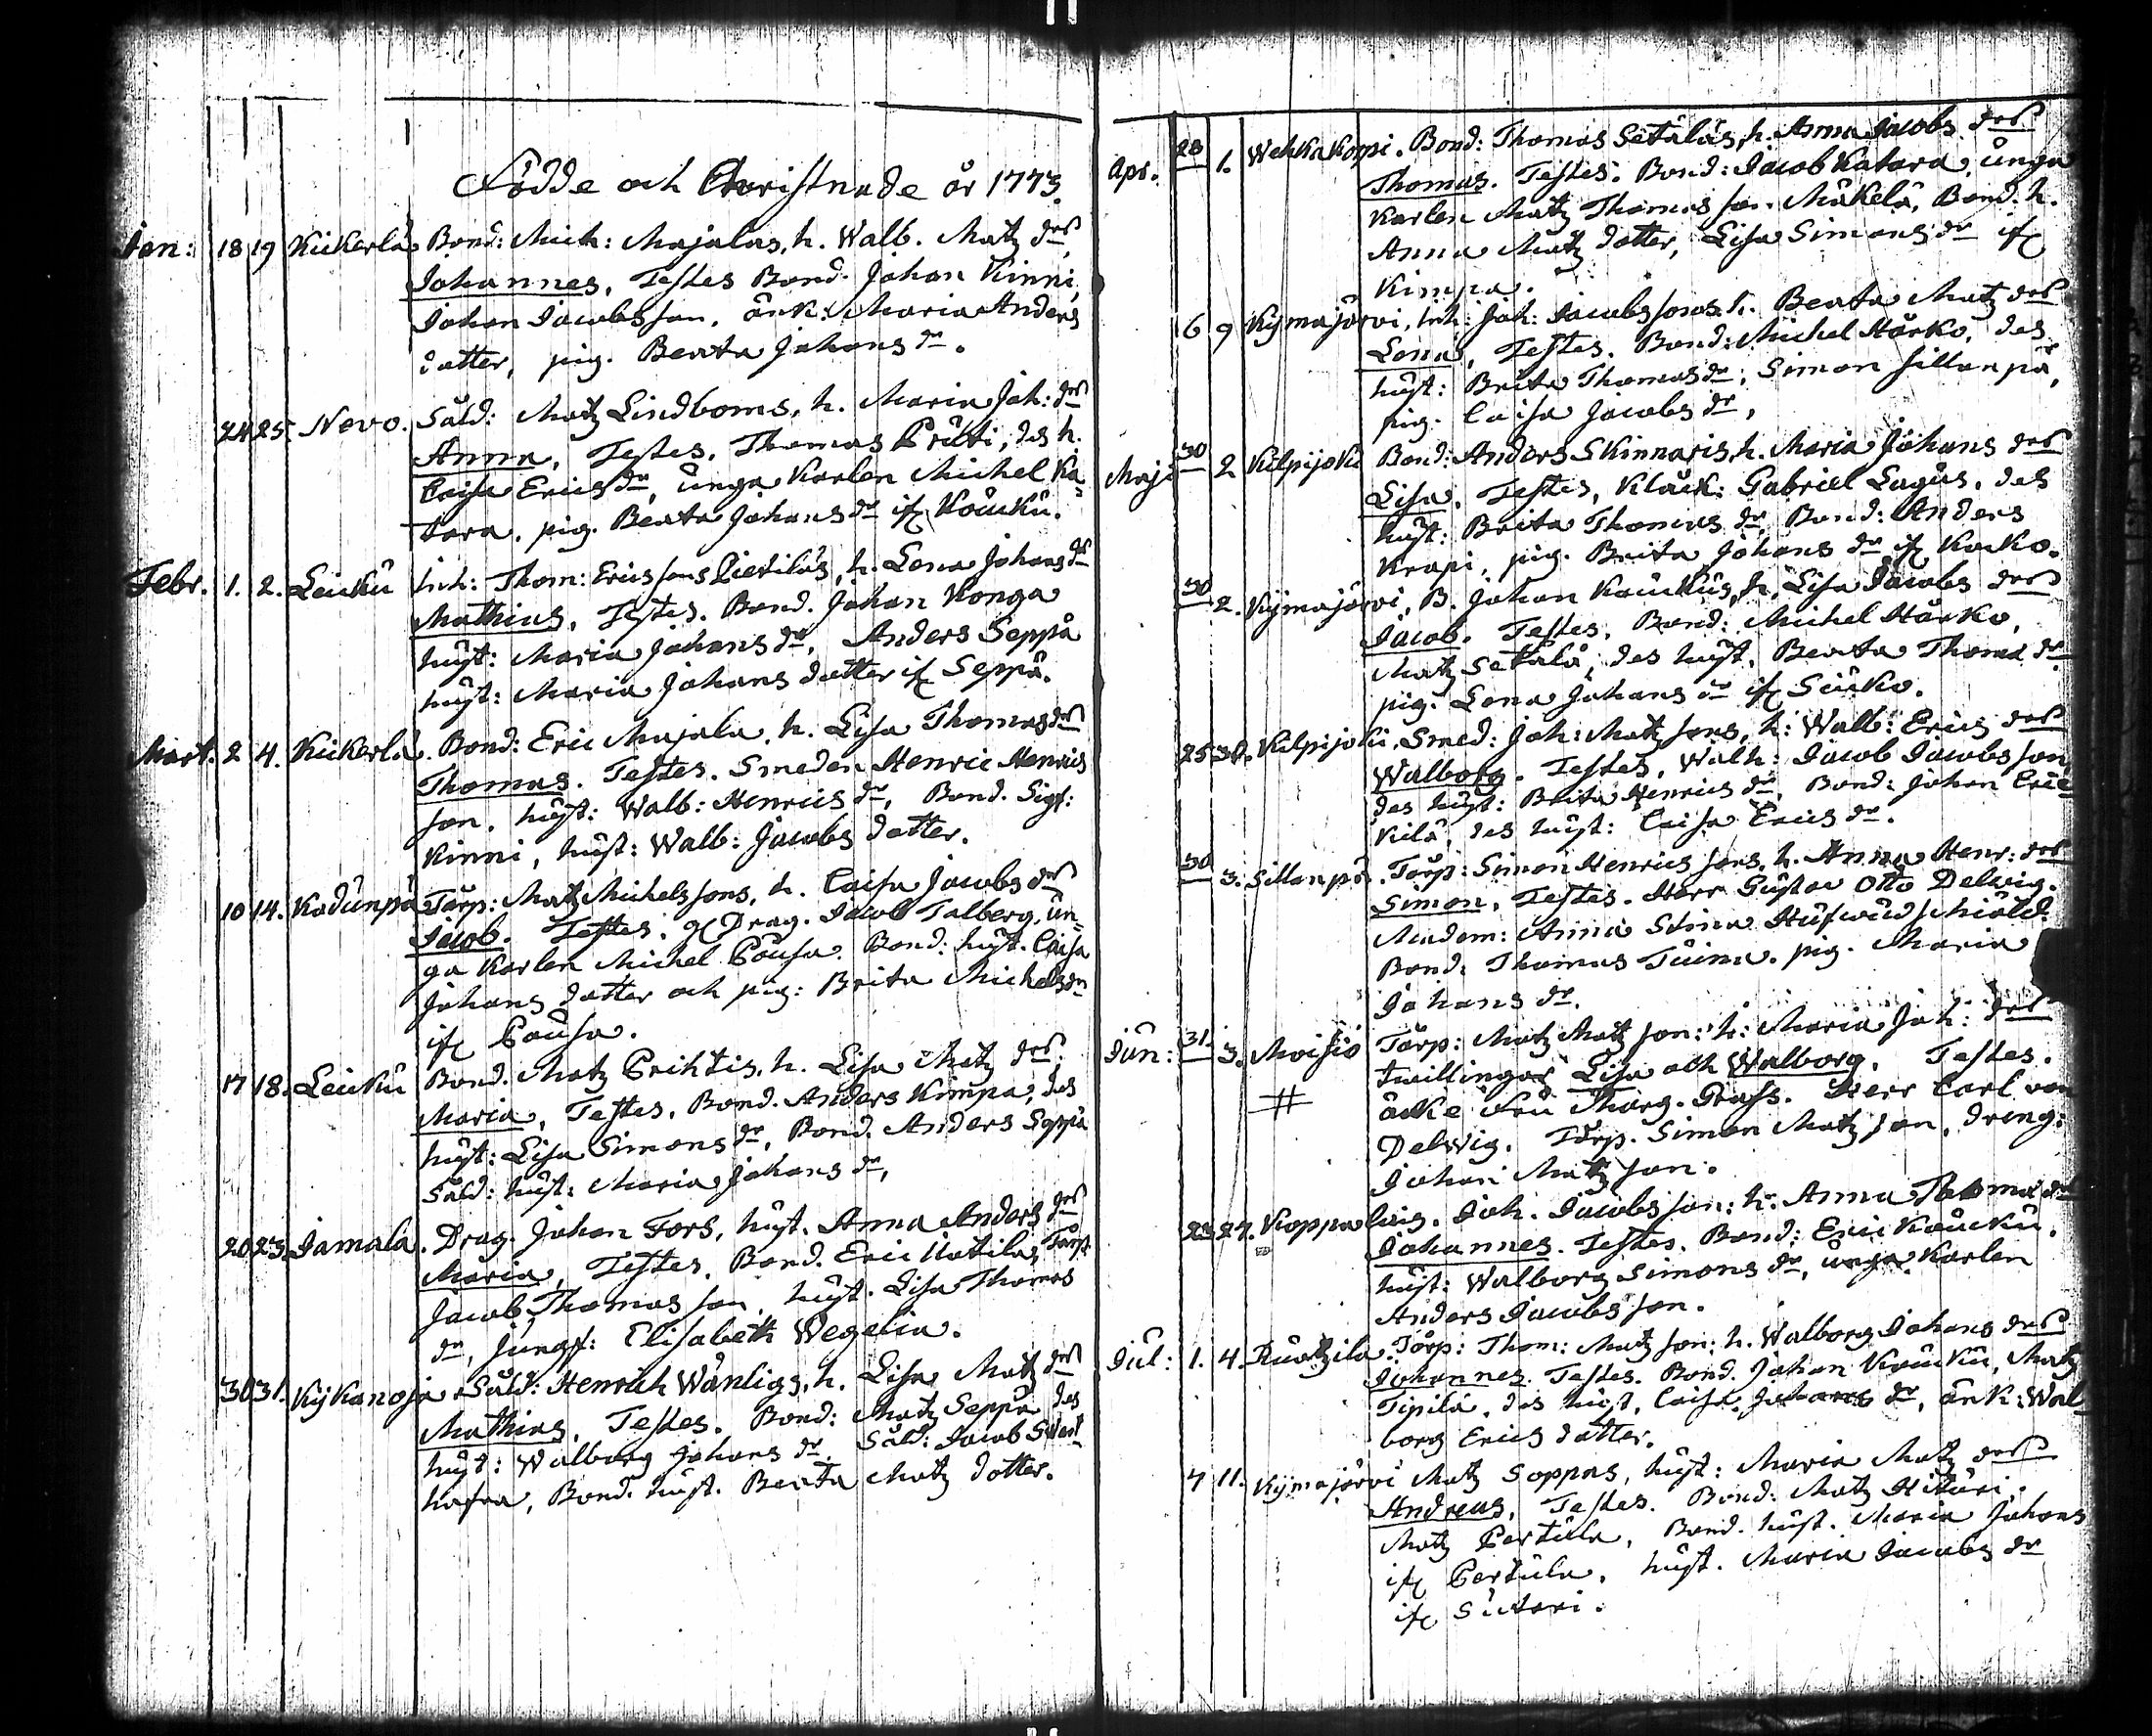 Födde och Christnade år 1773.
Jan: 18 19 Kickerlä Bond: Mich: Majalas, h. Walb. Matz drs
Johannes, Testes Bond. Johan Kinni,
Johan Jacobsson, änk: Maria Anders
dotter, pig. Beata Johans dr.
24 25. Nevo. Såld: Matz Lindboms, h. Maria Joh: drs
Anna, Testes, Thomas Prütti, des h.
Caisa Erics dr, unga Karlen Michel Ka=
tara, pig. Beata Johans dr if Kåuku.
Febr. 1. 2. Leinku Inh: Thom: Ericssons Pietiläs, h. Lena Johans dr
Mathias, Testes. Bond. Johan Konga
hust: Maria Johans dr, Anders Seppä
hust: Maria Johans dotter if Seppä.
Mart. 2 4. Kickerlä. Bond: Eric Majala, h. Lisa Thomas drs
Thomas. Testes. Smeden Henric Henrics
son, hust: Walb: Henrics dr, Bond. Sigf:
Kinni, hust: Walb: Jacobs dotter.
10 14. Kadunpä Torp: Matz Michelssons, h. Caisa Jacobs dr
Jacob. Testes. Drag. Jacob Talberg, un=
ga Karlen Michel Pousa. Bond: hust. Caisa
Johans dotter och pig: Brita Michels dr
if Pousa.
17 18. Leinku Bond. Matz Prihtis, h. Lisa Matz drs.
Maria, Testes, Bond. Anders Kimpa, des
hust: Lisa Simons dr, Bond. Anders Seppä
Såld: hust: Maria Johans dr,
20 23. Jamala. Drag. Johan Fors, hust. Anna Anders drs
Maria, Testes. Bond. Eric Uotila, Torp.
Jacob Thomas son, hust. Lisa Thomas
dr, Jungf: Elisabeth Wegelia.
30 31. Kykanoja Såld: Henrich Wänligs, h. Lisa Matz drs
Mathias, Testes. Bond: Matz Seppä des
hust: Walborg Johans dr. Såld: Jacob
hafra, Bond. hust. Beata Matz dotter.
Apr. 28 1. Wehkakorpi. Bond: Thomas Setäläs, h. Anna Jacobs drs
Thomas. Testes: Bond: Jacob Katara, unga
Karlen Matz Thomas son Mäkelä, Bond. h.
Anna Matz dotter, Lisa Simons dr if
Kimpa.
6 9 Kymajärvi, Inh: Joh: Jacobssons h. Beata Matz drs
Lena, Testes. Bond: Michel Härko, des
hust: Brita Thomas dr, Simon Sillanpä,
pig. Caisa Jacobs dr,
Maji 30 2 Kilpijoki Bond: Anders Skinnaris h. Maria Johans drs
Lisa, Testes, Klåck: Gabriel Lagus, des
hust: Brita Thomas dr, Bond: Anders
Krapi, pig. Brita Johans dr if Kocko.
30 2. Kymajärvi, B. Johan Kouckus, h. Lisa Jacobs drs
Jacob. Testes. Bond: Michel Härko,
Matz Setälä, des hust, Beata Thomas dr
pig. Lena Johans dr if Siuko.
25 30. Kilpijoki, Smed: Joh: Matz sons, h: Walb: Erics drs
Walborg. Testes, Walh: Jacob Jacobsson,
des hust: Brita Henrics dr, Bond: Johan Eric
kilä, des hust: Caisa Erics dr.
30 3. Sillanpä. Torp: Simon Henrics sons, h. Anna Henr: drs
Simon, Testes. Herr Gustav Otto Delwig.
Madem: Anna Stina
Bond: Thomas Tuima. pig. Maria
Johans dr.
Jun: 31. 3. Moisio Torp: Matz Matz son: h: Maria Joh: drs
# twillingar Lisa och Walborg. Testes.
Fru Marg. Grass. Herr Carl von
Delwig. Torp. Simon Matz son, dreng:
Johan Matz son.
23 27. Koppa Joh. Jacobs son: h. Anna Thomas dr
Johannes. Testes. Bond: Eric Koucku.
hust: Walborg Simons dr, unga Karlen
Anders Jacobs son.
Jul: 1. 4. Ruotzila. Torp: Thom: Matz son: h. Walborg Johans drs
Johannes. Testes. Bond. Johan Koucku, Matz
Tipilä, des hust, Caisa Johans dr, änk: Wal
borg Erics dotter.
7 11. Kymajärvi Matz Soppas, hust: Maria Matz drs
Andreas, Testes. Bond: Matz Hituri,
Matz Pertula, Bond. hust. Maria Johans
if Pertula, hust. Maria Jacobs dr
if Sutari.